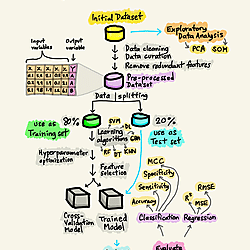 Initial Dataset
Exploratory
Data Analysis
PCA SOM
Input
variables
Output
variable
Data cleaning
Data curation
Remove redundant features
Pre-processed
Dataset
Data splitting
80%
20%
Use as
Training set
SVM
DL
Learning
algorithms
GBM
RF DT KNN
Use as
Test set
Hyperparameter
optimization
Feature
Selection
MCC
Specificity
Sensitivity
Accuracy
RMSE
MSE
R²
Classification
Regression
Cross-
Validation
Model
Trained
Model
Evaluate